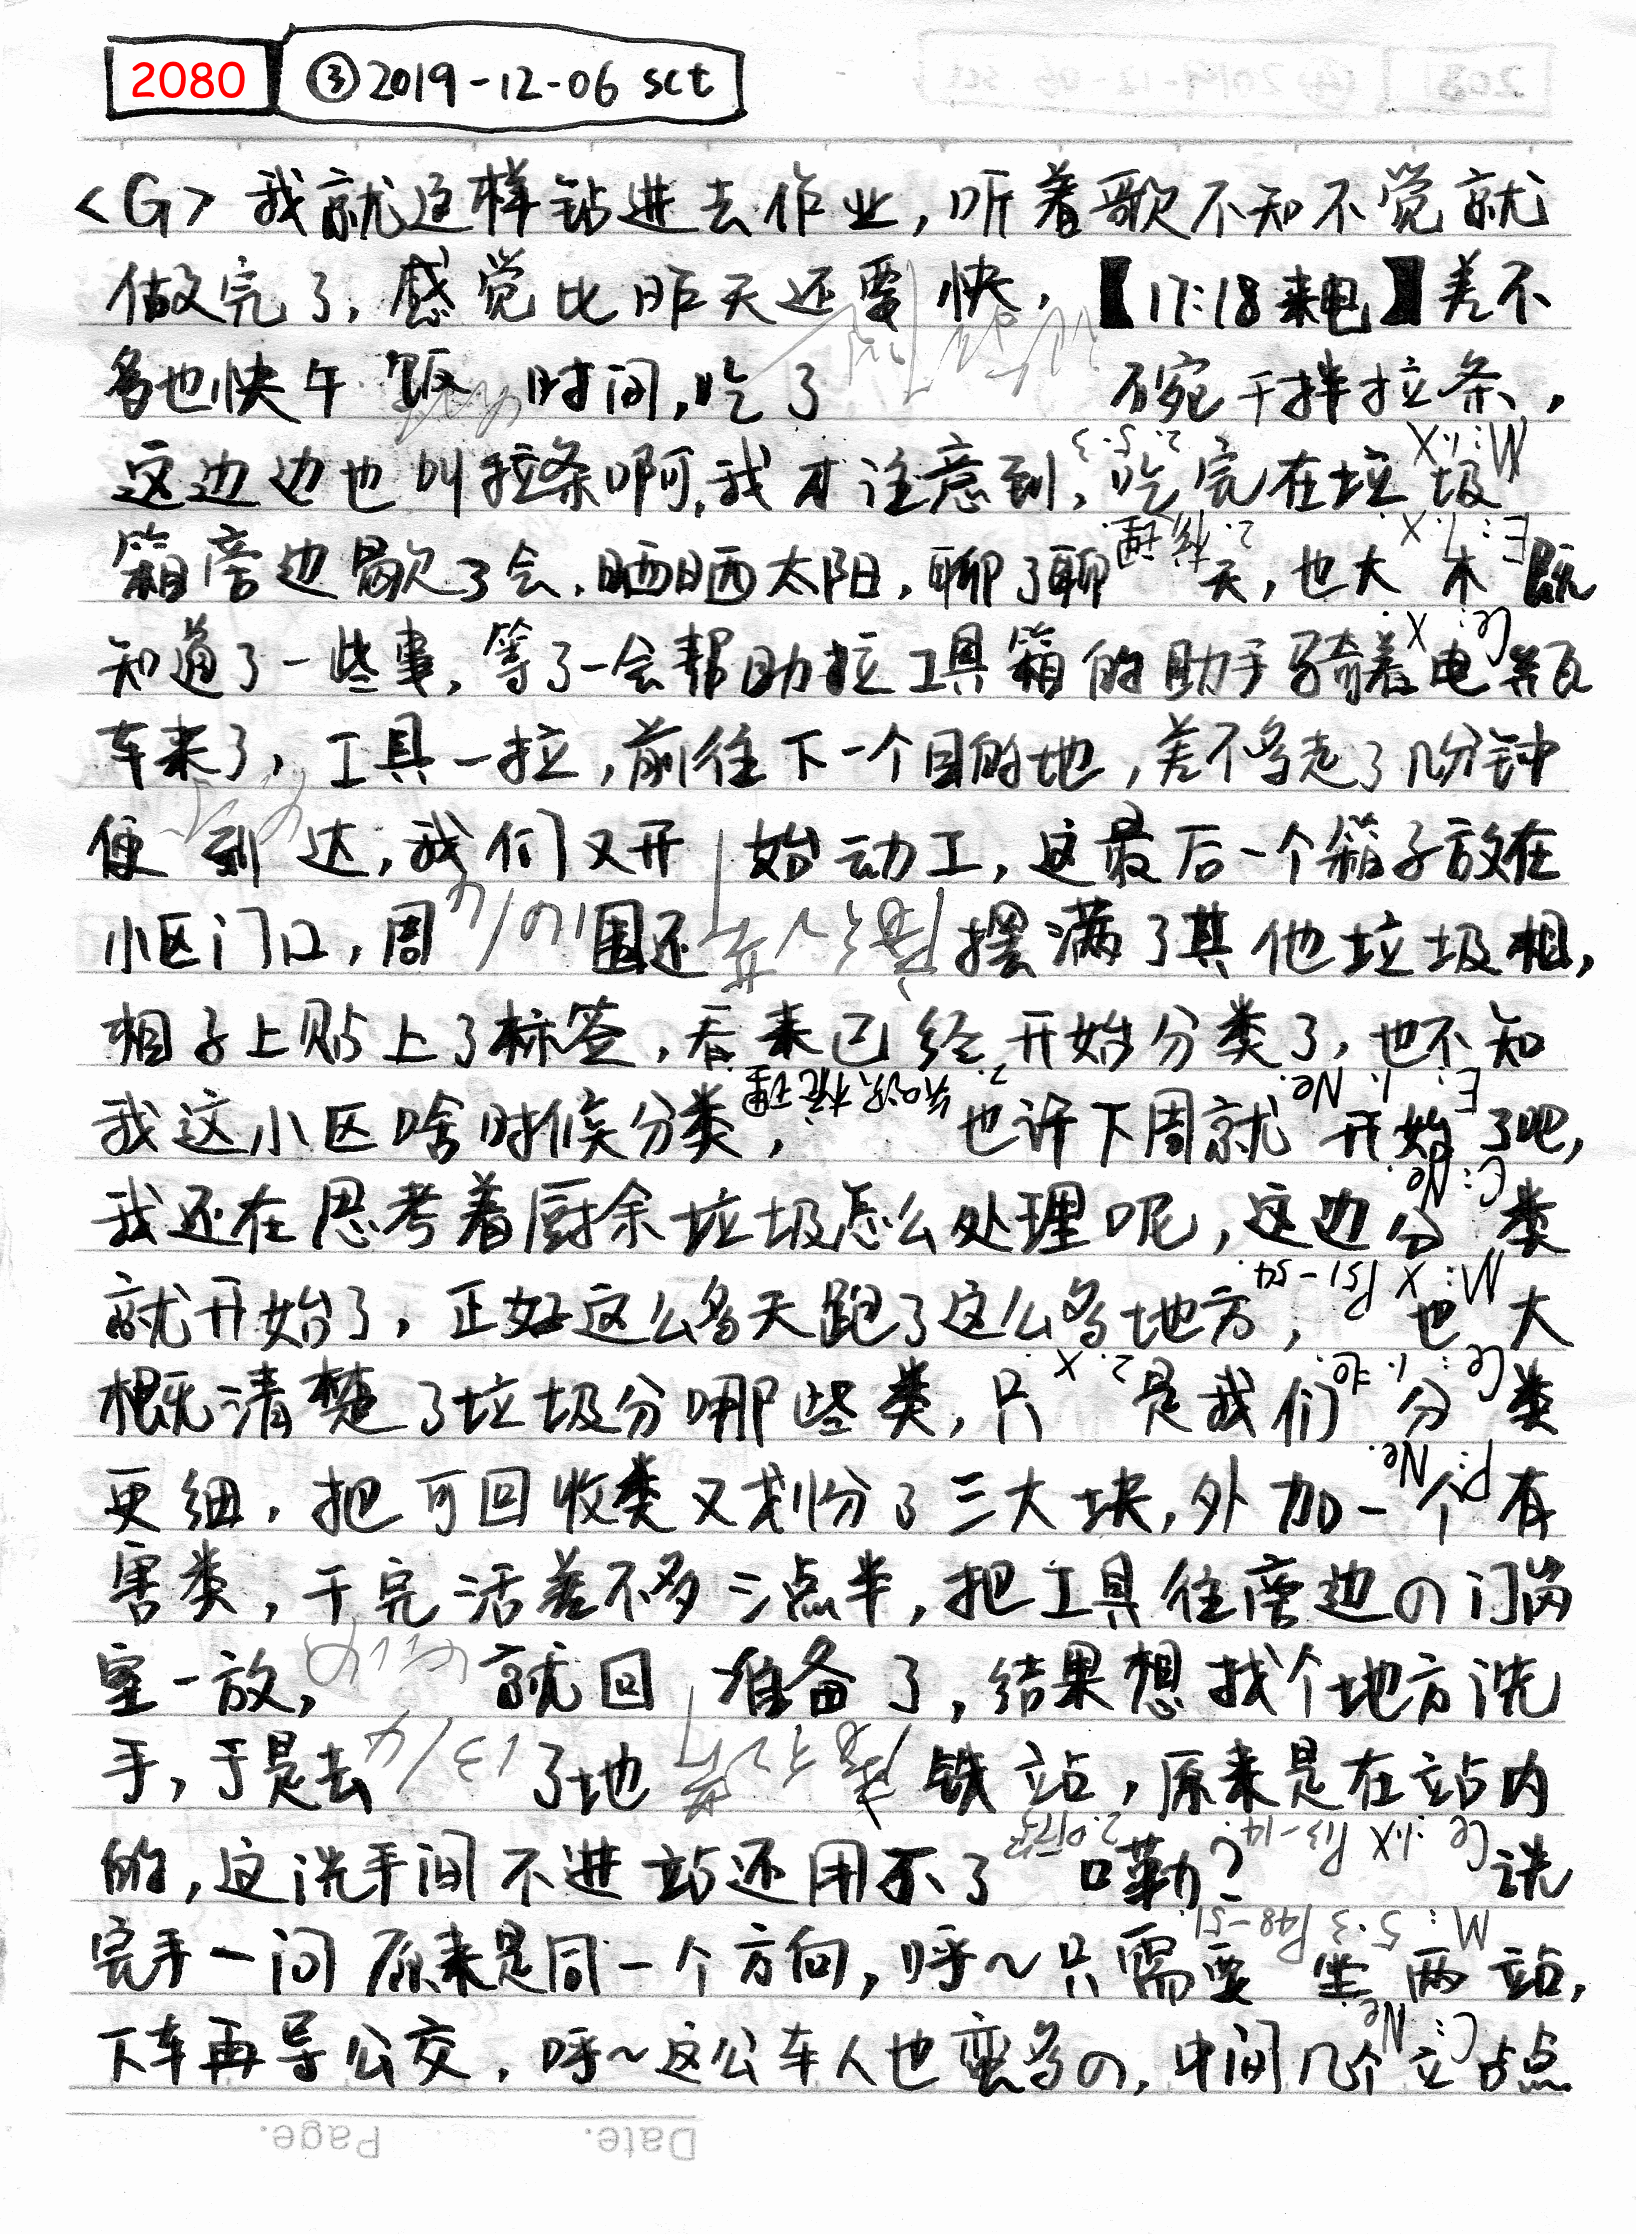 2080 ③2019-12-06 sct
<G> 我就这样钻进去作业,听着歌不知不觉就
做完了,感觉比昨天还要快,【17:18来电】差不
多也快午饭时间,吃了 碗干拌拉条,
这边边也叫拉条啊,我才注意到,吃完在垃圾
箱旁边歇了会,晒晒太阳,聊了聊天,也大概
知道了一些事,等了一会帮助拉工具箱的助手骑着电瓶
车来了,工具一拉,前往下一个目的地,差不多走了几分钟
便到达,我们又开始动工,这最后一个箱子放在
小区门口,周围还摆满了其他垃圾相,
相子上贴上了标签,看来已经开始分类了,也不知
我这小区啥时候分类,也许下周就开始了吧,
我还在思考着厨余垃圾怎么处理呢,这边分类
就开始了,正好这么多天跑了这么多地方,也大
概清楚了垃圾分哪些类,只是我们分类
更细,把可回收类又划份了三大块,外加一个有
害类,干完活差不多三点半,把工具往旁边の门岗
室一放,就回准备了,结果想找个地方洗
手,于是去了地铁站,原来是在站内
的,这洗手间不进站还用不了嘞?洗
完手一问原来是同一个方向,呼~只需要坐两站,
下车再导公交,呼~这公车人也蛮多の,中间几个站点
Date.
Page.